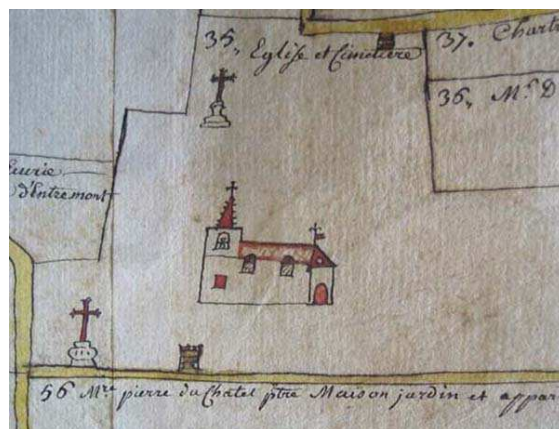 35, Eglise et Cimetiere
37. Chartr
36, Mr. D
d'Entremont
56 Mre. pierre du Chatel ptre Maison jardin et appar